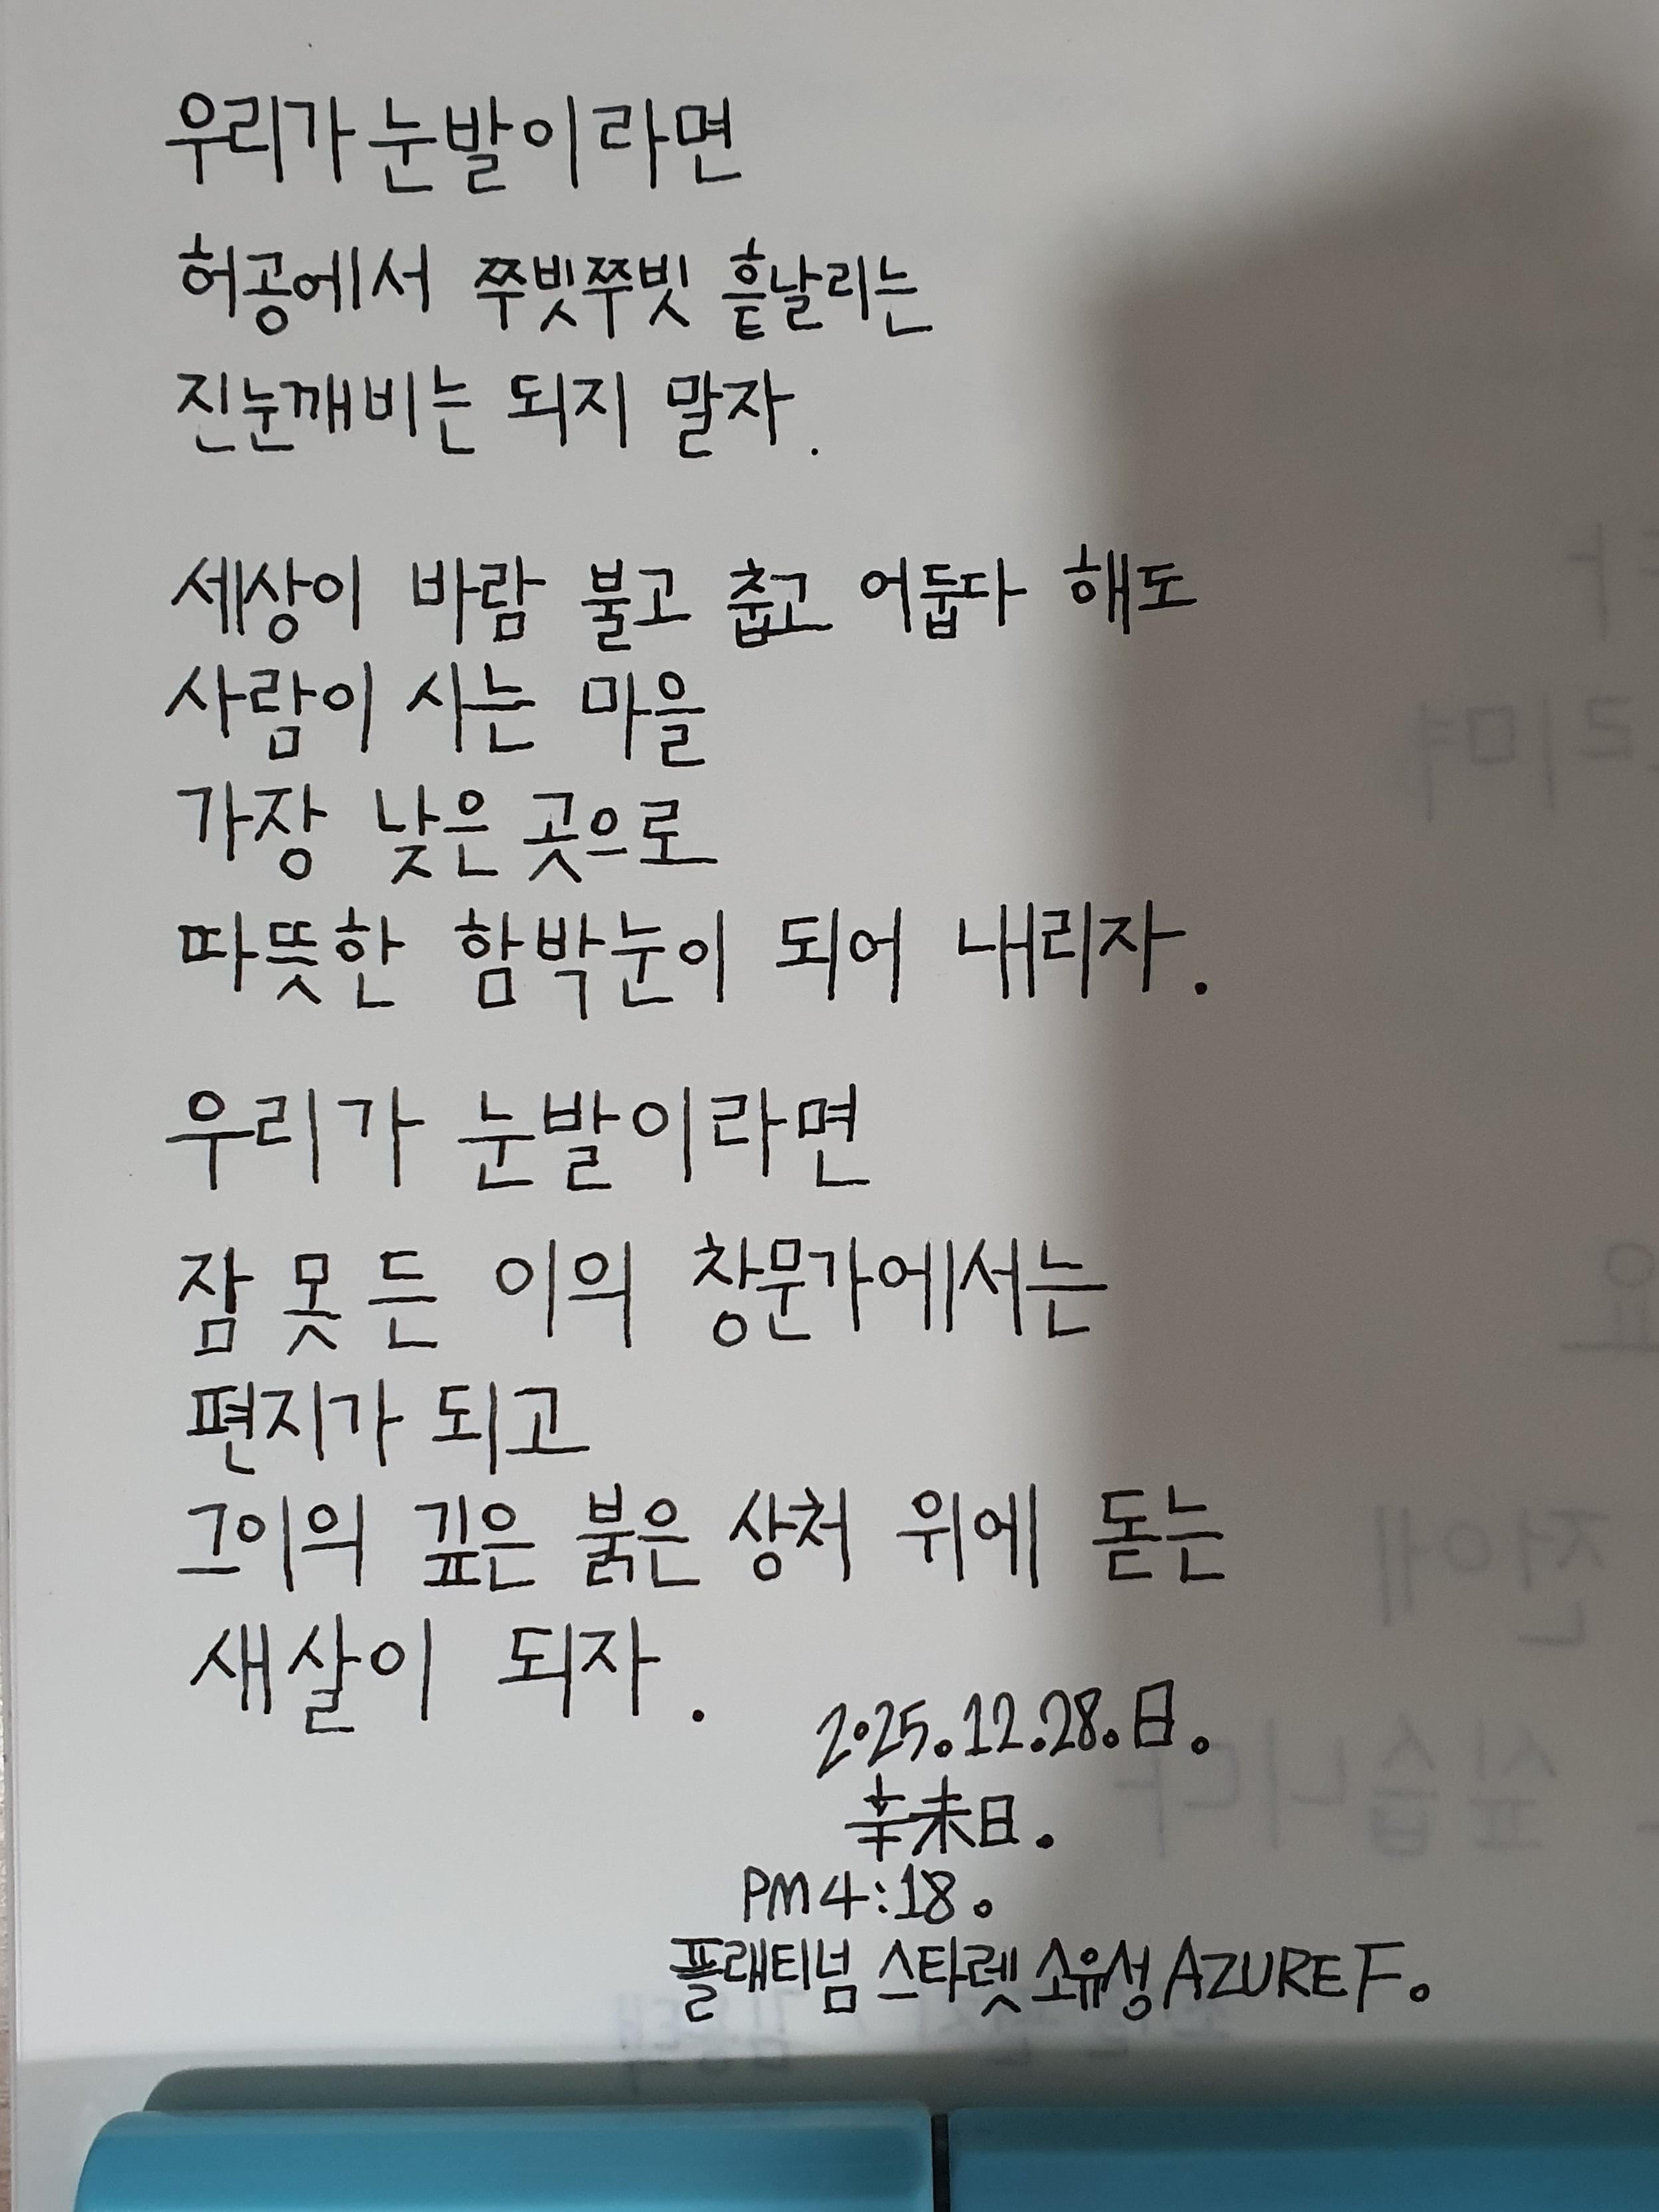 우리가 눈발이라면
허공에서 쭈빗쭈빗 흩날리는
진눈깨비는 되지 말자.
세상이 바람 불고 춥고 어둡다 해도
사람이 사는 마을
가장 낮은 곳으로
따뜻한 함박눈이 되어 내리자.
우리가 눈발이라면
잠 못 든 이의 창문가에서는
편지가 되고
그이의 깊은 붉은 상처 위에 돋는
새살이 되자.
2025.12.28.日.
辛未日.
PM 4:18.
플래티넘 스타렛 소유성 AZURE F.